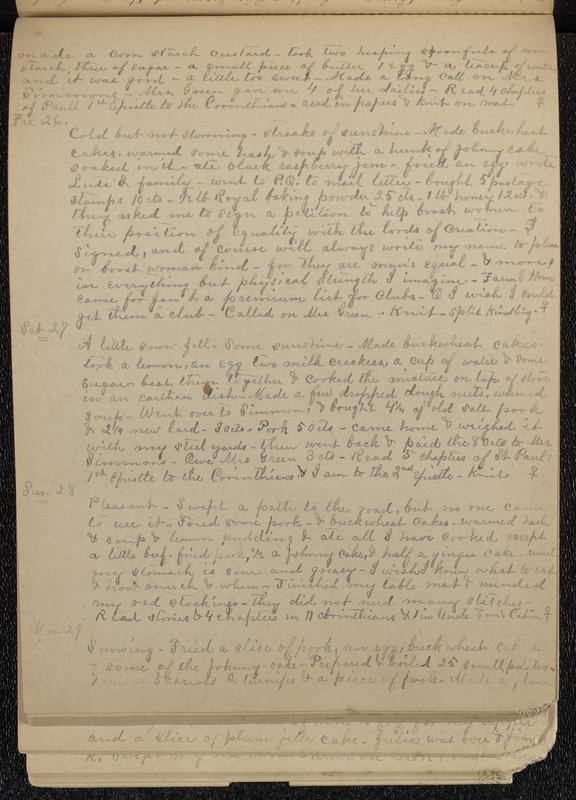 made a corn starch custard - took two heaping spoonfuls of corn
starch, three of sugar - a small piece of butter 1 egg & a teacup of water
and it was good - a little too sweet - Made a long call on Mrs
Simmons - Mrs Green gave me 4 of her dailies - Read 4 chapters
of Paul's 1st Epistle to the Corinthians - read in papers & Knit on mat ♀
Fri 26.
Cold but not storming - streaks of sunshine - Made buckwheat
cakes. warmed some hash & soup with a hunk of Johnny cake
soaked in it - ate black raspberry jam - fried an egg, wrote
& family - went to P.O. to mail letter - bought 5 postage
stamps 10cts - 1/2 lb Royal baking powder 25 cts - 1 lb honey &
they asked me to sign a petition to help boost women to
their position of equality with the lords of Creation - I
signed, and of course will always write my name to
or boost woman kind - for they are man's equal - & more,
in everything but physical strength I imagine - Farm & Home
came for Jan & a premium list for Clubs - O I wish I could
get them a club - Called on Mrs Green - Knit - Split Kindling ♀
Sat 27
A little snow fell - Some sunshine - Made buckwheat cakes -
took a lemon, an egg two milk crackers, a cup of water & some
sugar beat them together & cooked the mixture on top of stove
in an earthen dish - Made a few dropped dough nuts. warmed
soup - Went over to Simmons' & bought of old salt pork
& new lard - 30cts. Pork 50cts - came home & weighed it
with my steel yards - then went back & paid the 80cts to Mrs
Simmons. Owe Mrs Green 3 cts - Read 5 chapters of St Paul's
1st Epistle to the Corinthians & I am to the 2nd Epistle - Knit ♀
Sun 28
Pleasant - Swept a path to the road, but no one came
to use it - Fried some pork - & buckwheat cakes - warmed hash
& soup & lemon pudding & ate all I have cooked except
a little beef - fried pork, 1/2 a Johnny cake, & half a ginger cake - and
my stomach is sour and greasy - I wish I knew what to eat
& how much & when - Finished my table mat & mended
my red stockings - they did not need many stitches -
Read stories & 4 chapters in II Corinthians & 1 in Uncle Tom's Cabin ♀
Mon 29
Snowing - Fried a slice of pork, an egg, buckwheat cakes
& some of the Johnny-cake - Prepared & boiled 25 small potatoes
3 carrots 2 turnips & a piece of pork - Made a plum
and a slice of plum jelly cake - Julia was over &